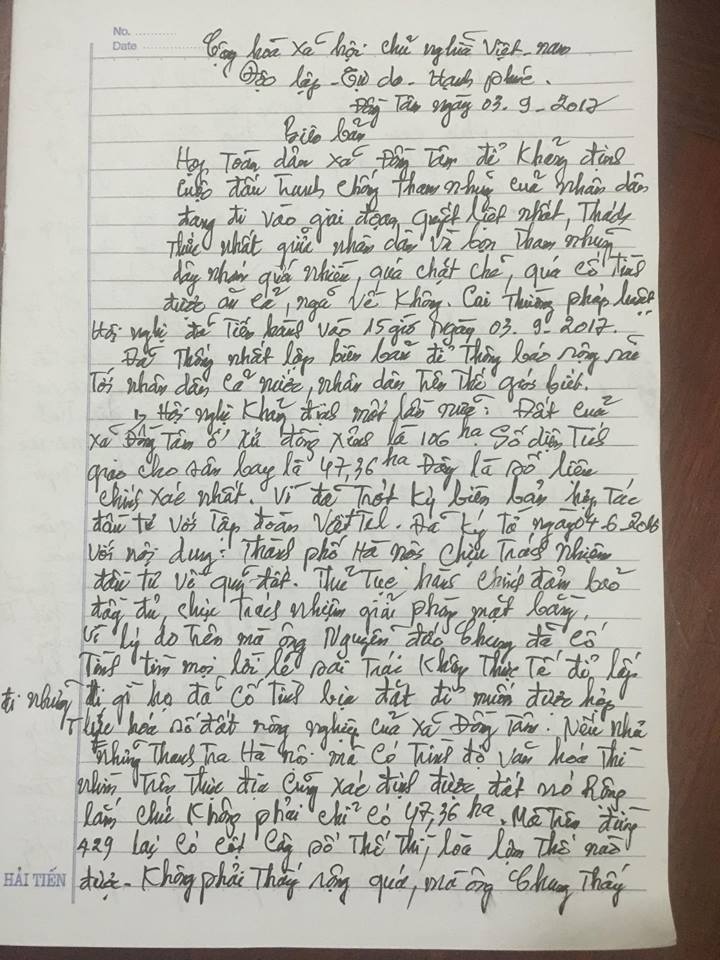 No. ............
Date ............
Cộng hòa xã hội chủ nghĩa Việt-nam
Độc lập - Tự do - Hạnh phúc.
Đồng Tâm ngày 03.9-2017
Biên bản
Họp Toàn dân xã Đồng Tâm để Khẳng định
cuộc đấu tranh chống tham nhũng của nhân dân
đang đi vào giai đoạn quyết liệt nhất, Thách
thức nhất giữa nhân dân và bọn Tham nhũng
dây nhóm quá nhiều, quá chặt chẽ, quá cố Tình
được ăn cả, ngã về không. Coi Thường pháp luật
Hội nghị đã Tiến hành vào 15 giờ ngày 03.9-2017.
Đã Thống nhất lập biên bản để Thông báo rộng rãi
Tới nhân dân cả nước, nhân dân Trên Thế giới biết.
1, Hội nghị Khẳng định một lần nữa: Đất của
xã Đồng Tâm ở xứ đồng xênh là 106 ha Số diện Tích
giao cho sân bay là 47,36 ha Đây là số liệu
chính xác nhất. Vì đã Trót Ký biên bản hợp Tác
đầu tư với Tập đoàn Viettel. Đã ký Từ ngày 04-6-2016
với nội dung: Thành phố Hà nội chịu Trách nhiệm
đầu tư về quỹ đất. Thủ Tục hành chính đảm bảo
đầy đủ, chịu trách nhiệm giải phóng mặt bằng,
Vì lý do Trên mà ông Nguyễn đức Chung đã cố
Tình tìm mọi lời lẽ sai Trái Không Thực Tế để lấp
đi những gì họ đã cố Tình bịa đặt để muốn được hợp
Thức hóa số đất nông nghiệp của xã Đồng Tâm. Nếu như
những Thanh Tra Hà nội mà có Trình độ văn hóa Thì
nhìn Trên Thực địa cũng xác định được đất nó rộng
lắm chứ Không phải chỉ có 47,36 ha. Mà Trên đường
429 lại có cột cây số Thế Thì, lòa lợm Thế nào
được - Không phải Thấy rộng quá, mà ông Chung Thấy
HẢI TIẾN